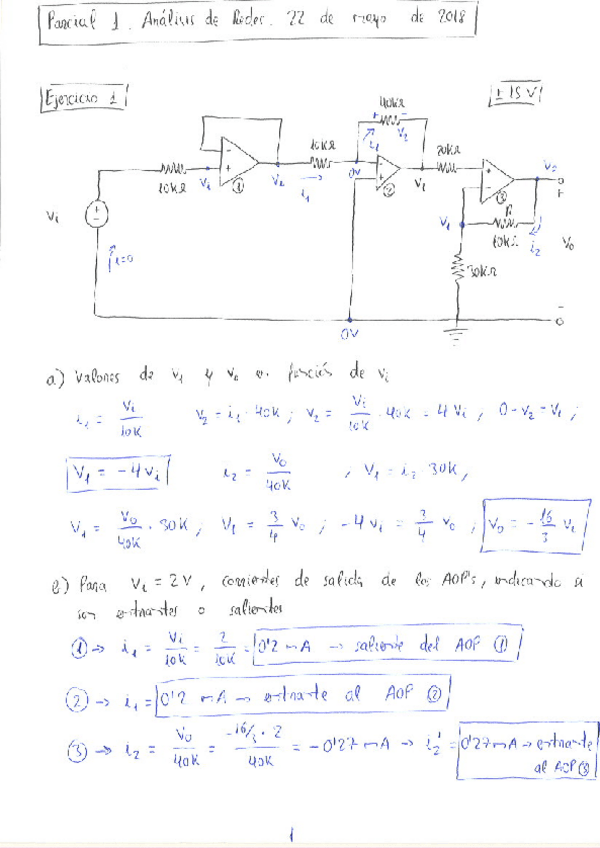 Parcial 1. Análisis de Redes. 22 de mayo de 2018
Ejercicio 1
± 15 V
40kΩ
+ -
i₁ V₂
10kΩ
20kΩ
10kΩ
Vi
Vi
①
Vi
i₁
0V
②
V₁
③
V₀
+
V₁
R
10kΩ
i₂'
V₀
30kΩ
i=0
-
0V
a) Valores de v₁ y v₀ en función de vi
i₁ = Vi/10K V₂ = i₁ · 40K ; V₂ = Vi/10K · 40K = 4 Vi , 0 - V₂ = V₁ ;
V₁ = -4 Vi i₂ = V₀/40K , V₁ = i₂ · 30K ,
V₁ = V₀/40K · 30K ; V₁ = 3/4 V₀ ; -4 Vi = 3/4 V₀ ; V₀ = -16/3 Vi
b) Para Vi = 2V, corrientes de salida de los AOP's, indicando si
son entrantes o salientes
① → i₁ = Vi/10K = 2/10K = 0'2 mA → saliente del AOP ①
② → i₁ = 0'2 mA → entrante al AOP ②
③ → i₂ = V₀/40K = -16/3 · 2/40K = -0'27 mA → i₂' = 0'27 mA → entrante
al AOP ③
1